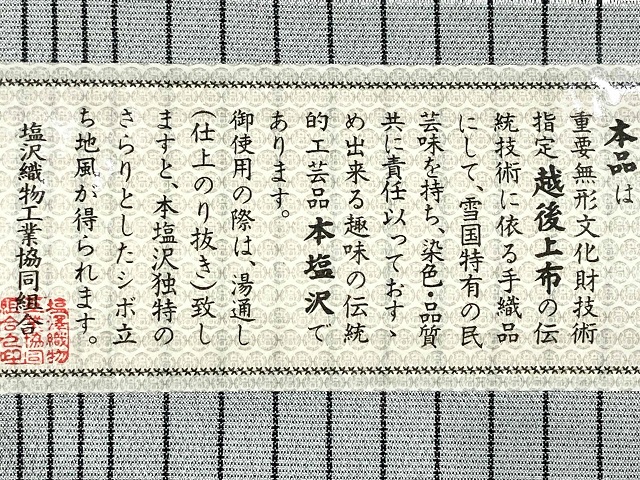 本品は
重要無形文化財技術
指定越後上布の伝
統技術に依る手織品
にして、雪国特有の民
芸味を持ち、染色・品質
共に責任以っておすゝ
め出来る趣味の伝統
的工芸品本塩沢で
あります。
御使用の際は、湯通し
(仕上のり抜き)致し
ますと、本塩沢独特の
さらりとしたシボ立
ち地風が得られます。
塩沢織物工業協同組合
塩澤織物
工業協同
組合之印